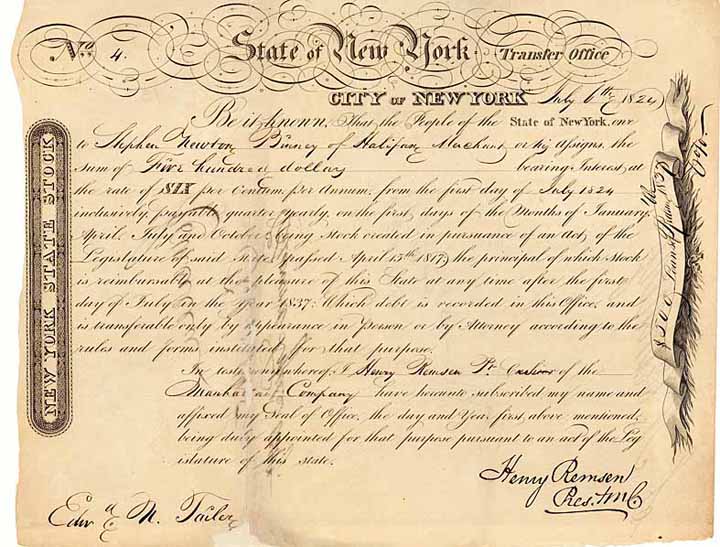 No. 4. State of New York Transfer Office
CITY OF NEW YORK July 6th 1824
Be it known, That the People of the State of New York, owe
to Stephen Newton Binney of Halifax Merchant or his assigns, the
sum of Five hundred dollars bearing Interest at
the rate of SIX per Centum per Annum, from the first day of July 1824
inclusively, payable quarter yearly, on the first days of the Months of January
April, July and October: being Stock created in pursuance of an Act, of the
Legislature of said State, passed April 15th 1817, the principal of which Stock
is reimbursable at the pleasure of this State at any time after the first
day of July in the Year 1837: Which debt is recorded in this Office, and
is transferable only by appearance in Person or by Attorney according to the
rules and forms instituted for that purpose.
In testimony whereof, I Henry Remsen Pt. of the
Manhattan Company have hereunto subscribed my name and
affixed my Seal of Office, the day and Year first above mentioned,
being duly appointed for that purpose pursuant to an act of the Leg
islature of this state.
Henry Remsen
Pres. M C
Edwd N. Tailer
NEW YORK STATE STOCK
$500